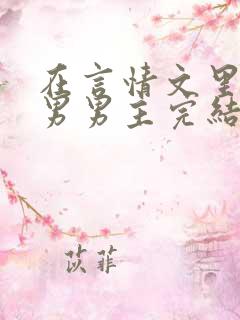 在言情文里
男男主完結
苡菲